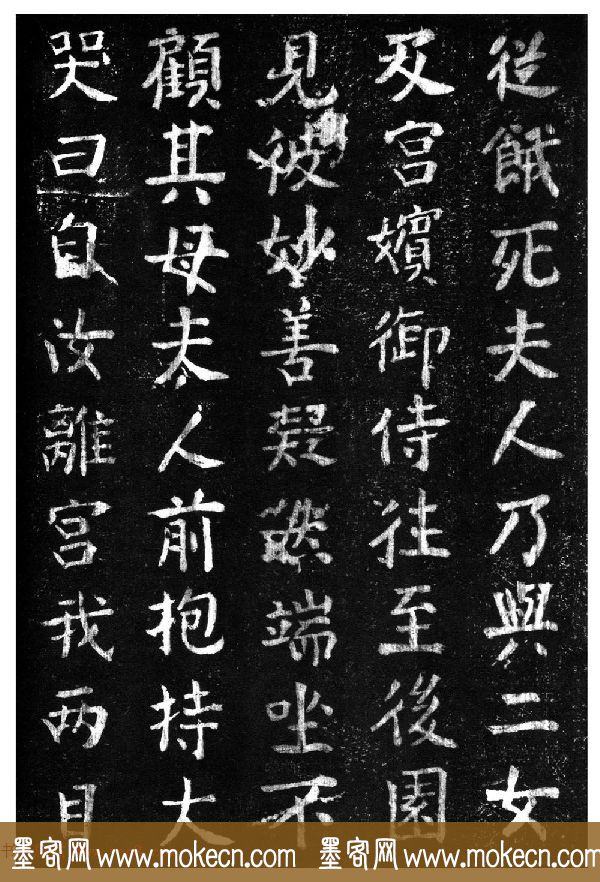 從餓死夫人乃與二女
及宮嬪御侍往至後園
見彼妙善凝然端坐不
顧其母夫人前抱持大
哭曰自汝離宮我两目
墨客网 www.mokecn.com 墨客网 www.mokecn.com